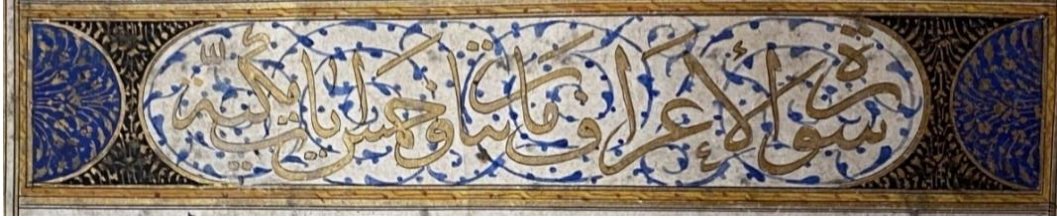 سورة الأعراف مائتان وخمس ايات مكية